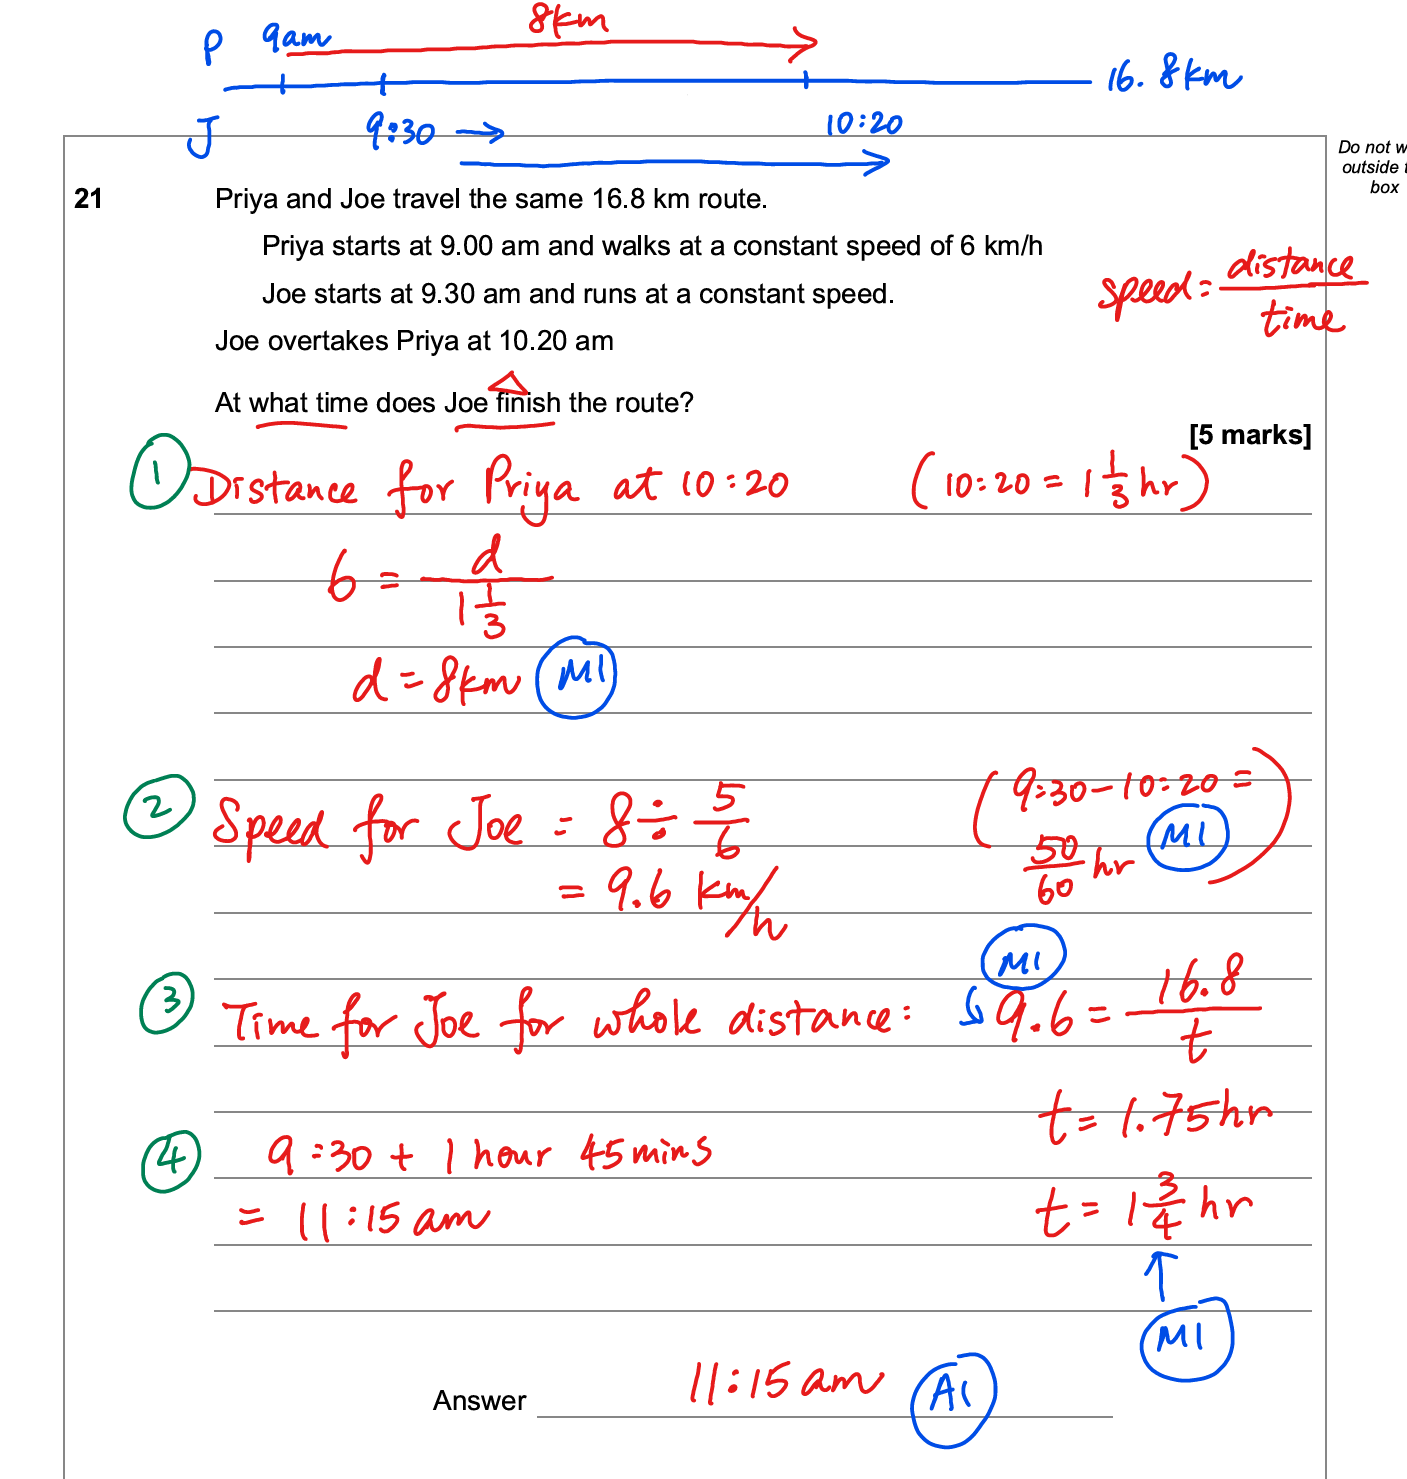 P 9am 8km
16.8km
J 9:30 10:20
Do not w
outside t
box
21 Priya and Joe travel the same 16.8 km route.
Priya starts at 9.00 am and walks at a constant speed of 6 km/h
Joe starts at 9.30 am and runs at a constant speed.
speed = distance / time
Joe overtakes Priya at 10.20 am
At what time does Joe finish the route?
[5 marks]
1 Distance for Priya at 10:20 (10:20 = 1 1/3 hr)
6 = d / 1 1/3
d = 8km M1
2 Speed for Joe = 8 ÷ 5/6 (9:30 - 10:20 =
50/60 hr M1 )
= 9.6 km/h
M1
3 Time for Joe for whole distance: 9.6 = 16.8 / t
t = 1.75hr
4 9:30 + 1 hour 45 mins
t = 1 3/4 hr
= 11:15 am
M1
Answer 11:15 am A1